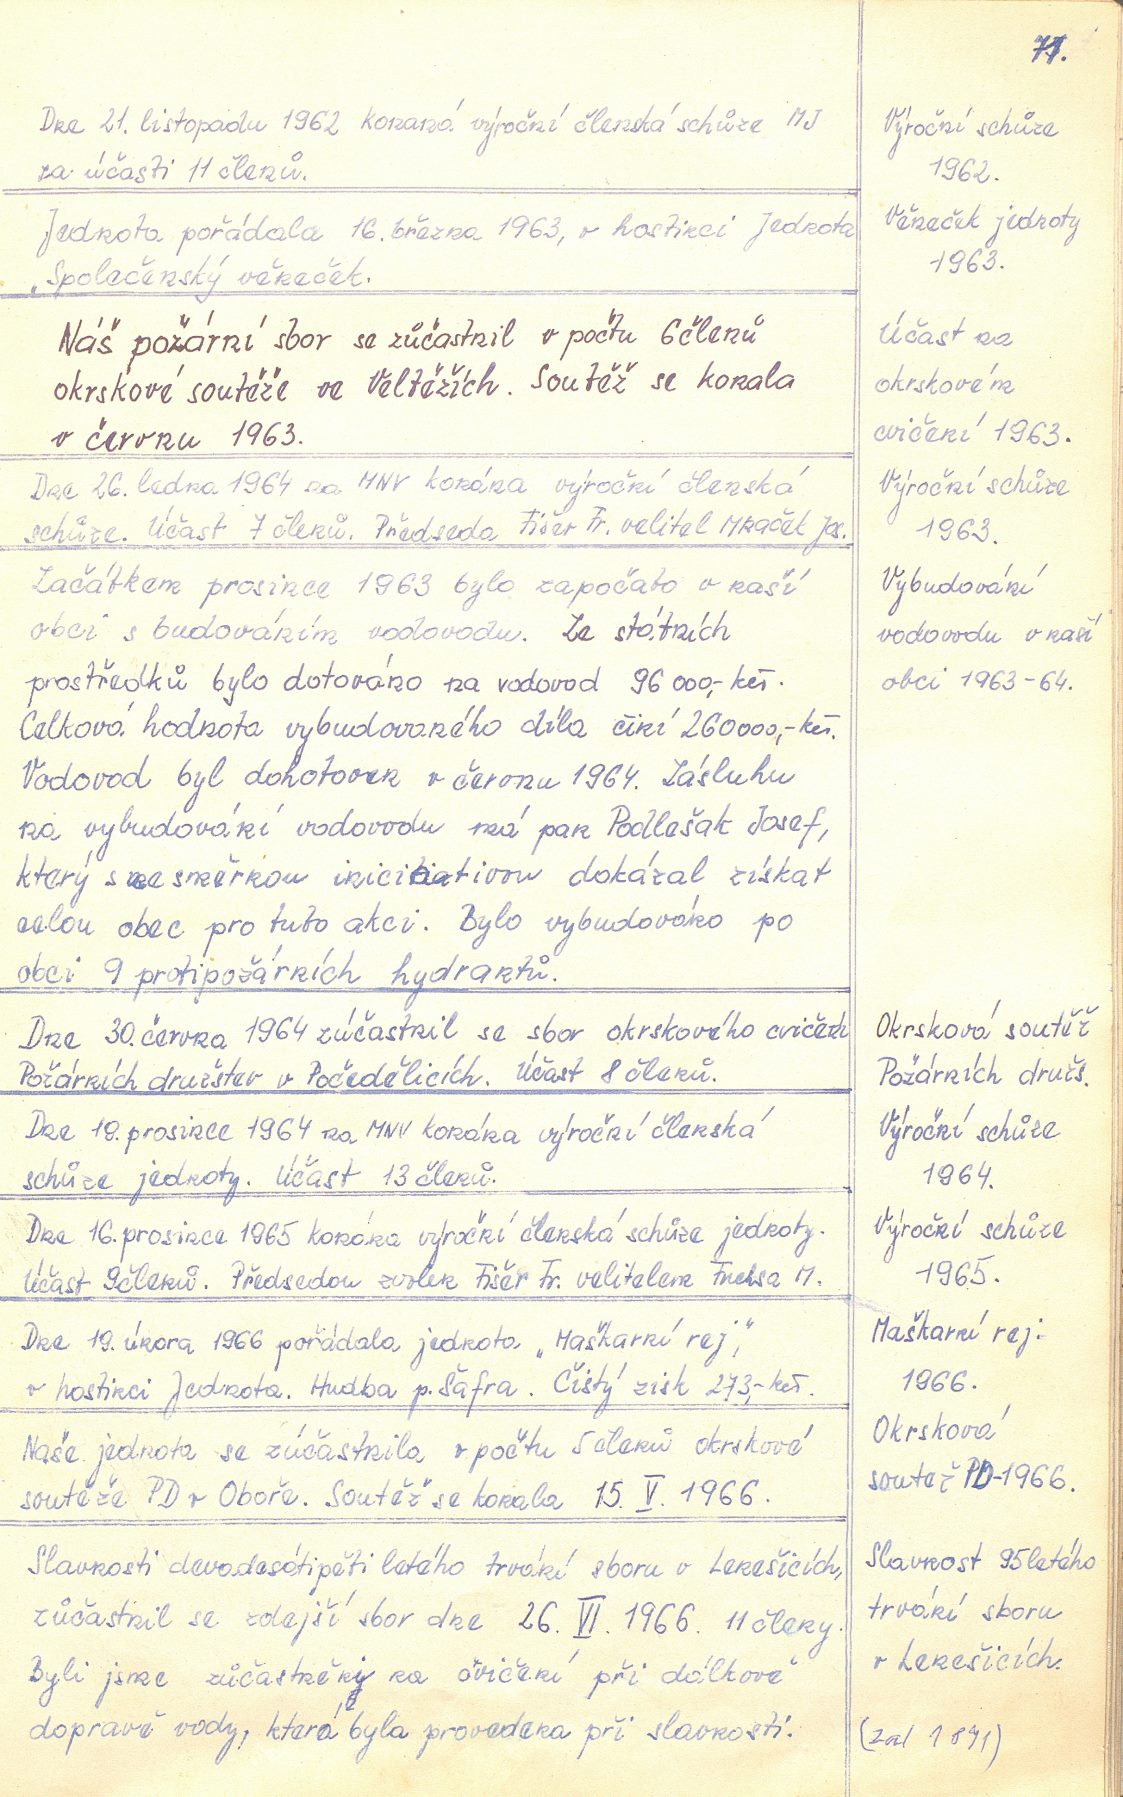 71.
Dne 21. listopadu 1962 konaná výroční členská schůze MJ
za účasti 11 členů.
Výroční schůze
1962.
Jednota pořádala 16. března 1963, v hostinci Jednota
„Společenský věneček.
Věneček jednoty
1963.
Náš požární sbor se zůčastnil v počtu 6 členů
okrskové soutěže ve Veltěžích. Soutěž se konala
v červnu 1963.
Účast na
okrskovém
cvičení 1963.
Dne 26. ledna 1964 na MNV konána výroční členská
schůze. Účast 7 členů. Předseda Fišer Fr. velitel Mraček Jos.
Výroční schůze
1963.
Začátkem prosince 1963 bylo započato v naší
obci s budováním vodovodu. Ze státních
prostředků bylo dotováno na vodovod 96 000,- kčs.
Celková hodnota vybudovaného díla činí 260000,- kčs.
Vodovod byl dohotoven v červnu 1964. Zásluhu
na vybudování vodovodu má pan Podlešak Josef,
který s nesměrnou iniciativou dokázal získat
celou obec pro tuto akci. Bylo vybudováno po
obci 9 protipožárních hydrantů.
Vybudování
vodovodu v naší
obci 1963-64.
Dne 30. června 1964 zúčastnil se sbor okrskového cvičení
Požárních družstev v Počedělicích. Účast 8 členů.
Okrsková soutěž
Požárních družs.
Dne 19. prosince 1964 na MNV konána výroční členská
schůze jednoty. Účast 13 členů.
Výroční schůze
1964.
Dne 16. prosince 1965 konána výroční členská schůze jednoty.
Účast 9 členů. Předsedou zvolen Fišer Fr. velitelem Fuchsa M.
Výroční schůze
1965.
Dne 19. února 1966 pořádala jednota „Maškarní rej",
v hostinci Jednota. Hudba p. Šafra. Čistý zisk 273,- kčs.
Maškarní rej.
1966.
Naše jednota se zúčastnila v počtu 5 členů okrskové
soutěže PD v Oboře. Soutěž se konala 15. V. 1966.
Okrsková
soutež PD-1966.
Slavnosti devadesátipěti letého trvání sboru v Lenešicích,
zůčastnil se zdejší sbor dne 26. VI. 1966. 11 členy.
Byli jsme zůčastněni na cvičení při dálkové
dopravě vody, která byla provedena při slavnosti.
Slavnost 95letého
trvání sboru
v Lenešicích.
(zal 1871)